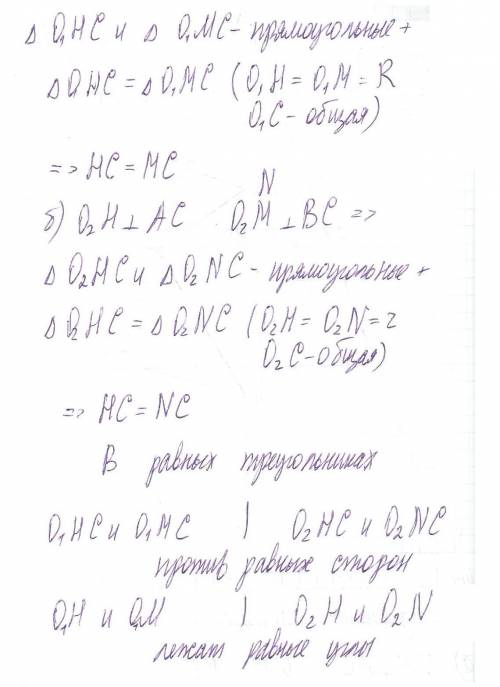 Δ O₁HC и Δ O₁MC - прямоугольные +
Δ O₁HC = Δ O₁MC (O₁H = O₁M = R
O₁C - общая)
=> HC = MC
N
б) O₂H ⊥ AC O₂M ⊥ BC =>
Δ O₂HC и Δ O₂NC - прямоугольные +
Δ O₂HC = Δ O₂NC (O₂H = O₂N = r
O₂C - общая)
=> HC = NC
В равных треугольниках
O₁HC и O₁MC | O₂HC и O₂NC
против равных сторон
O₁H и O₁M | O₂H и O₂N
лежат равные углы